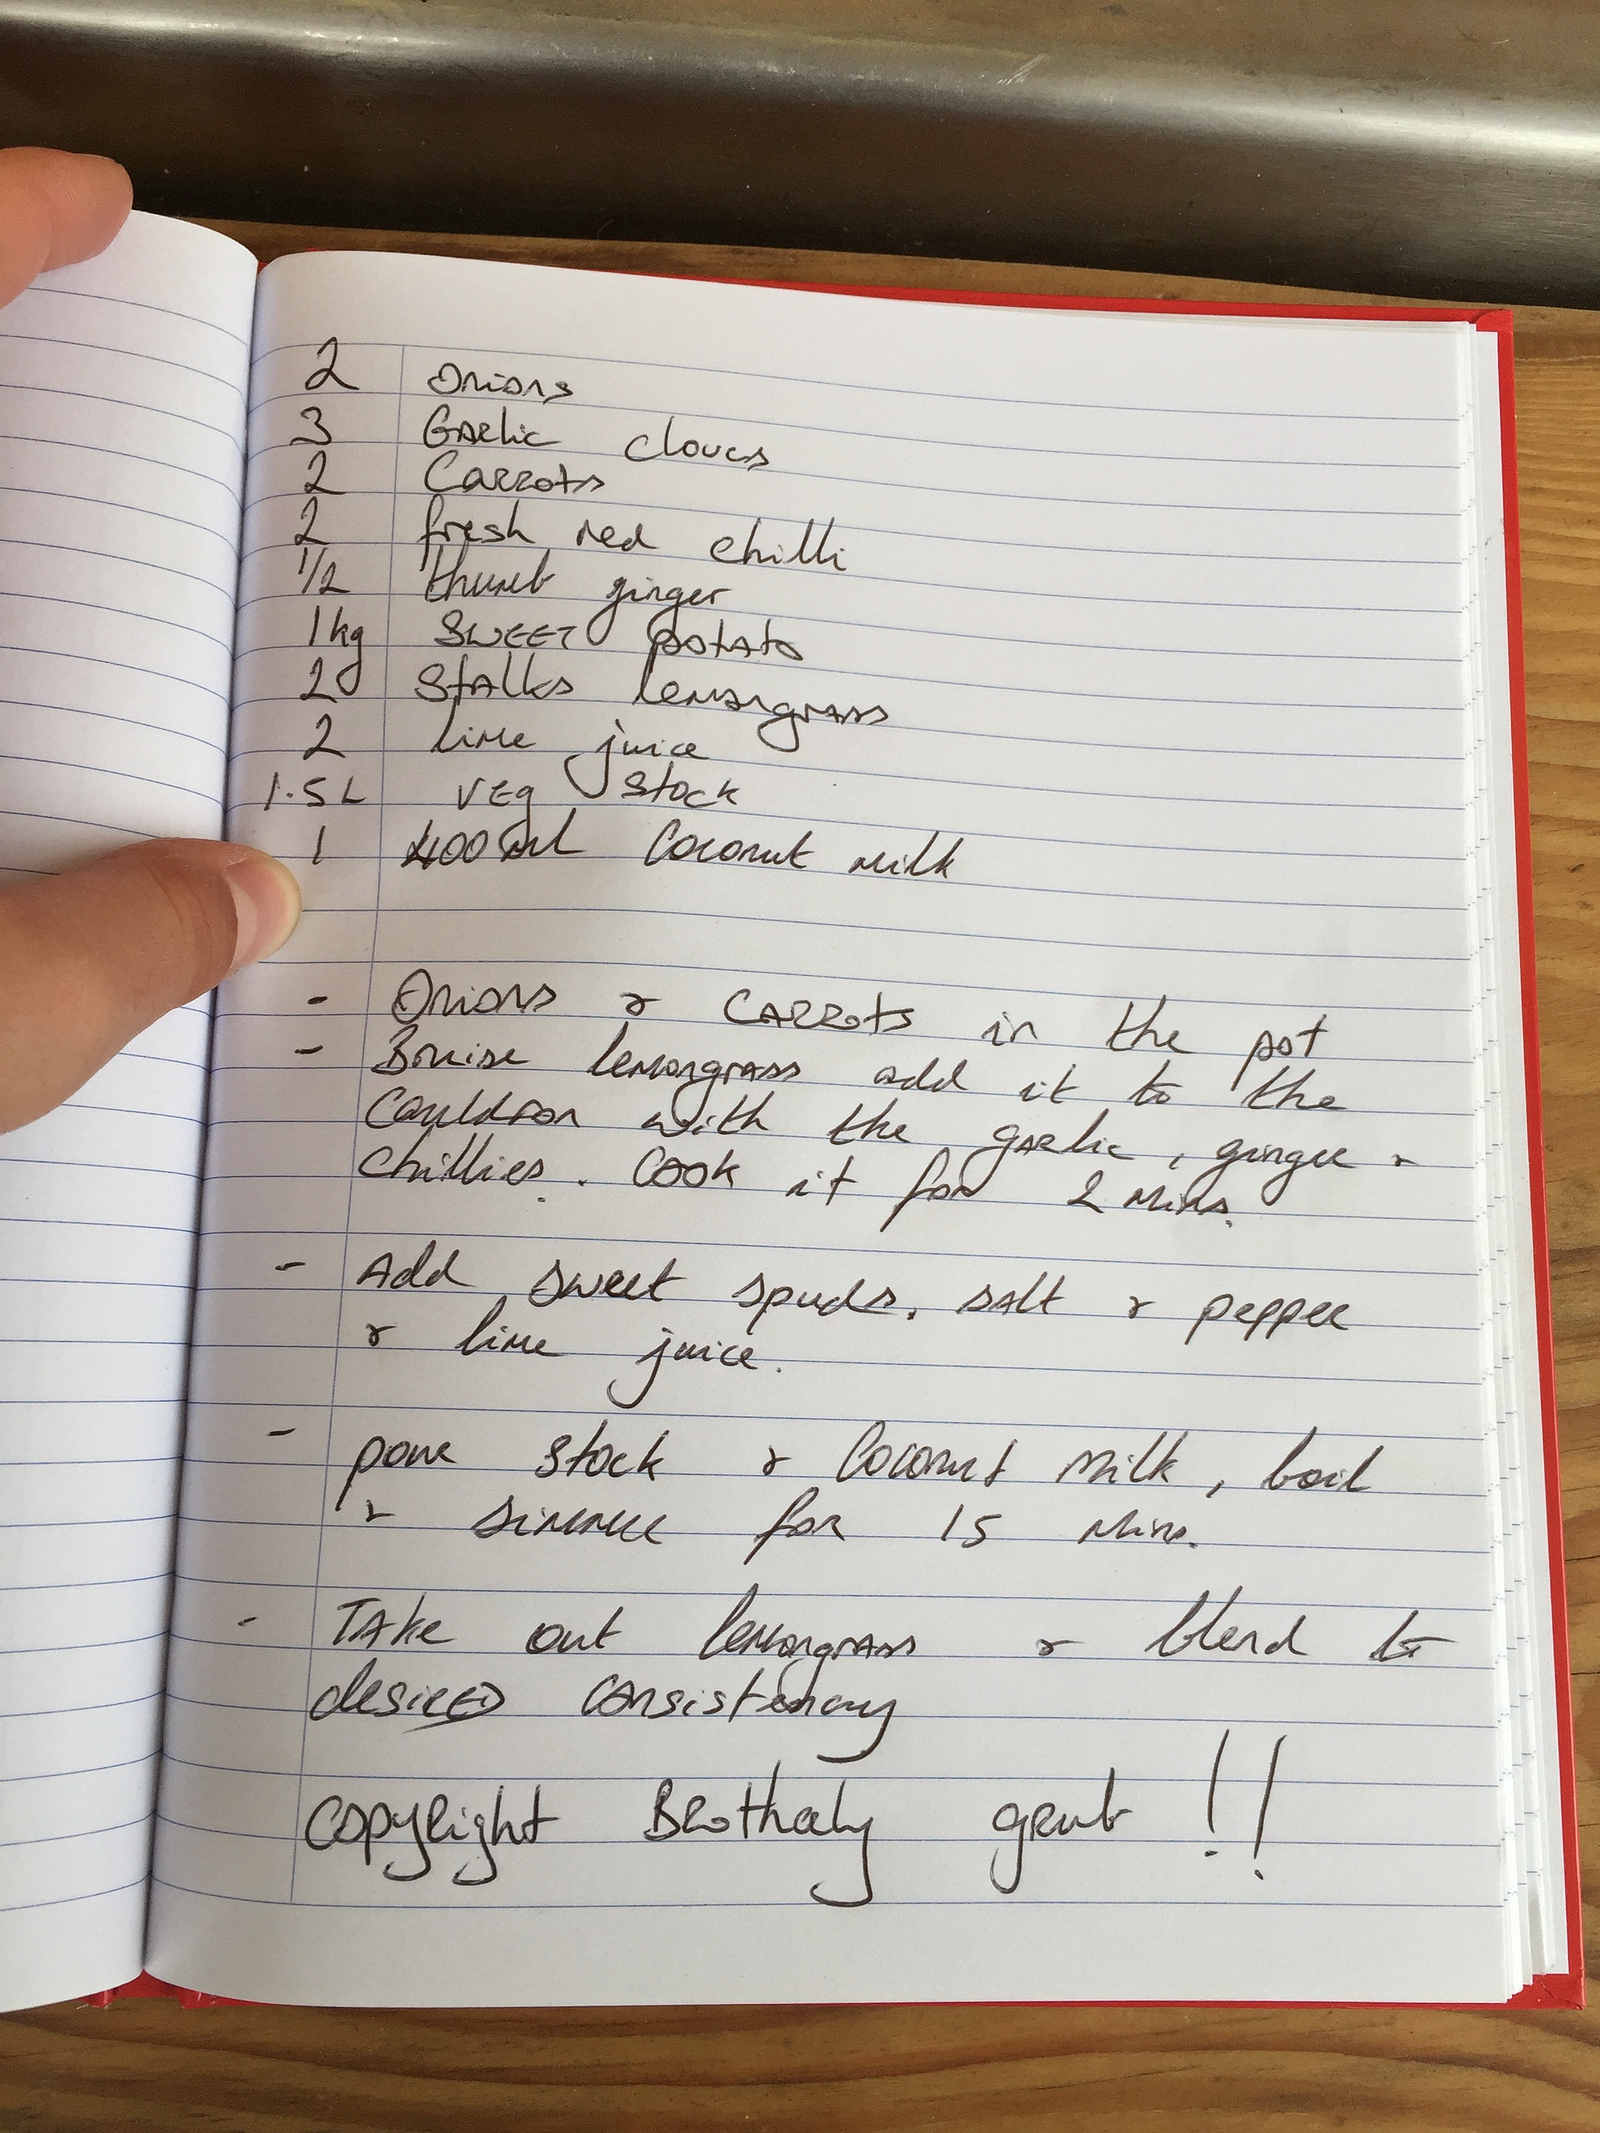 2 Onions
3 Garlic cloves
2 Carrots
2 fresh red chilli
1/2 thumb ginger
1kg SWEET potato
2 Stalks lemongrass
2 lime juice
1.5L veg stock
1 400ml Coconut milk
- Onions & CARROTS in the pot
- Bruise lemongrass add it to the
Cauldron with the garlic, ginger &
chillies. Cook it for 2 mins.
- Add sweet spuds, salt & pepper
& lime juice.
- pour stock & Coconut Milk, boil
& simmer for 15 mins.
- Take out lemongrass & blend to
desired consistency
Copyright Brotherly grub !!